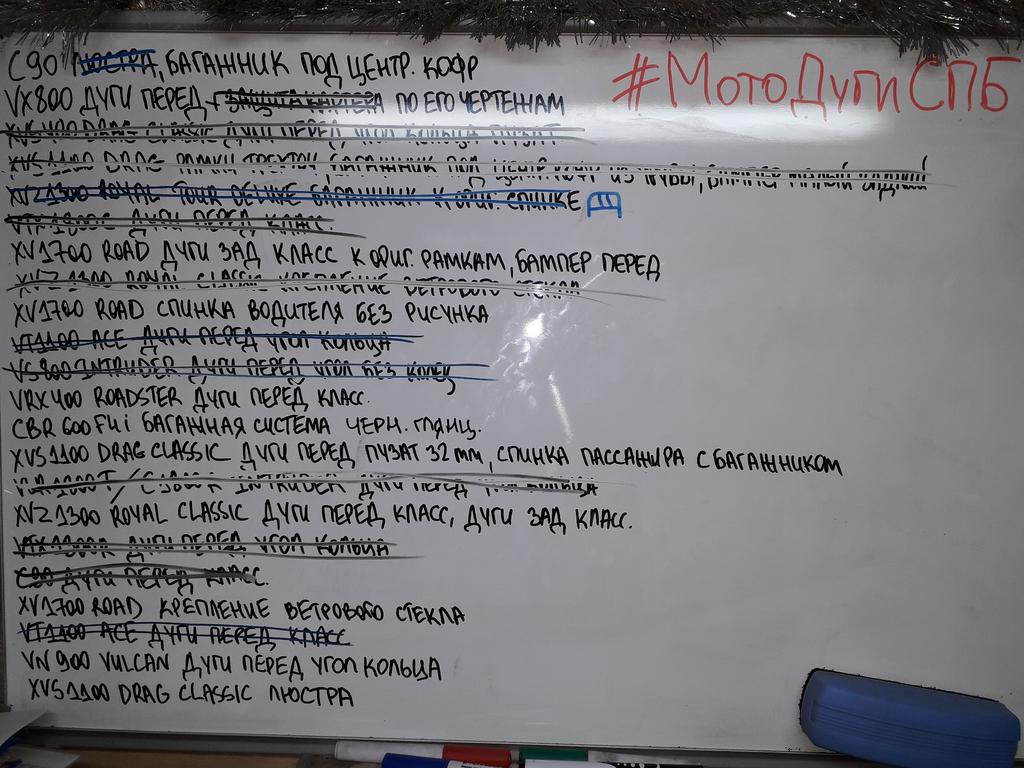 C90 ЛЮСТРА, БАГАЖНИК ПОД ЦЕНТР. КОФР
#МотоДугиСПБ
VX800 ДУГИ ПЕРЕД + ЗАЩИТА КАРТЕРА ПО ЕГО ЧЕРТЕЖАМ
XVS400 DRAG CLASSIC ДУГИ ПЕРЕД УГОЛ КОЛЬЦА ПУЗАТ
XVS1100 DRAG РАМКИ ТРЕУГОЛ, БАГАЖНИК ПОД ЦЕНТР КОФР ИЗ ТРУБЫ, БАМПЕР МАЛЫЙ ЗАДНИЙ
XVZ1300 ROYAL TOUR DELUXE БАГАЖНИК К ОРИГ. СПИНКЕ
VTX1800C ДУГИ ПЕРЕД КЛАСС.
XV1700 ROAD ДУГИ ЗАД КЛАСС К ОРИГ. РАМКАМ, БАМПЕР ПЕРЕД
XVZ1300 ROYAL CLASSIC КРЕПЛЕНИЕ ВЕТРОВОГО СТЕКЛА
XV1700 ROAD СПИНКА ВОДИТЕЛЯ БЕЗ РИСУНКА
VT1100 ACE ДУГИ ПЕРЕД УГОЛ КОЛЬЦА
VS800 INTRUDER ДУГИ ПЕРЕД УГОЛ БЕЗ КОЛЕЦ
VRX400 ROADSTER ДУГИ ПЕРЕД КЛАСС.
CBR600F4i БАГАЖНАЯ СИСТЕМА ЧЕРН. ГЛЯНЦ.
XVS1100 DRAG CLASSIC ДУГИ ПЕРЕД ПУЗАТ 32 mm, СПИНКА ПАССАЖИРА С БАГАЖНИКОМ
INTRUDER ДУГИ ПЕРЕД УГОЛ КОЛЬЦА
XVZ1300 ROYAL CLASSIC ДУГИ ПЕРЕД КЛАСС, ДУГИ ЗАД КЛАСС.
ДУГИ ПЕРЕД УГОЛ КОЛЬЦА
C90 ДУГИ ПЕРЕД КЛАСС.
XV1700 ROAD КРЕПЛЕНИЕ ВЕТРОВОГО СТЕКЛА
VT1100 ACE ДУГИ ПЕРЕД КЛАСС
VN900 VULCAN ДУГИ ПЕРЕД УГОЛ КОЛЬЦА
XVS1100 DRAG CLASSIC ЛЮСТРА